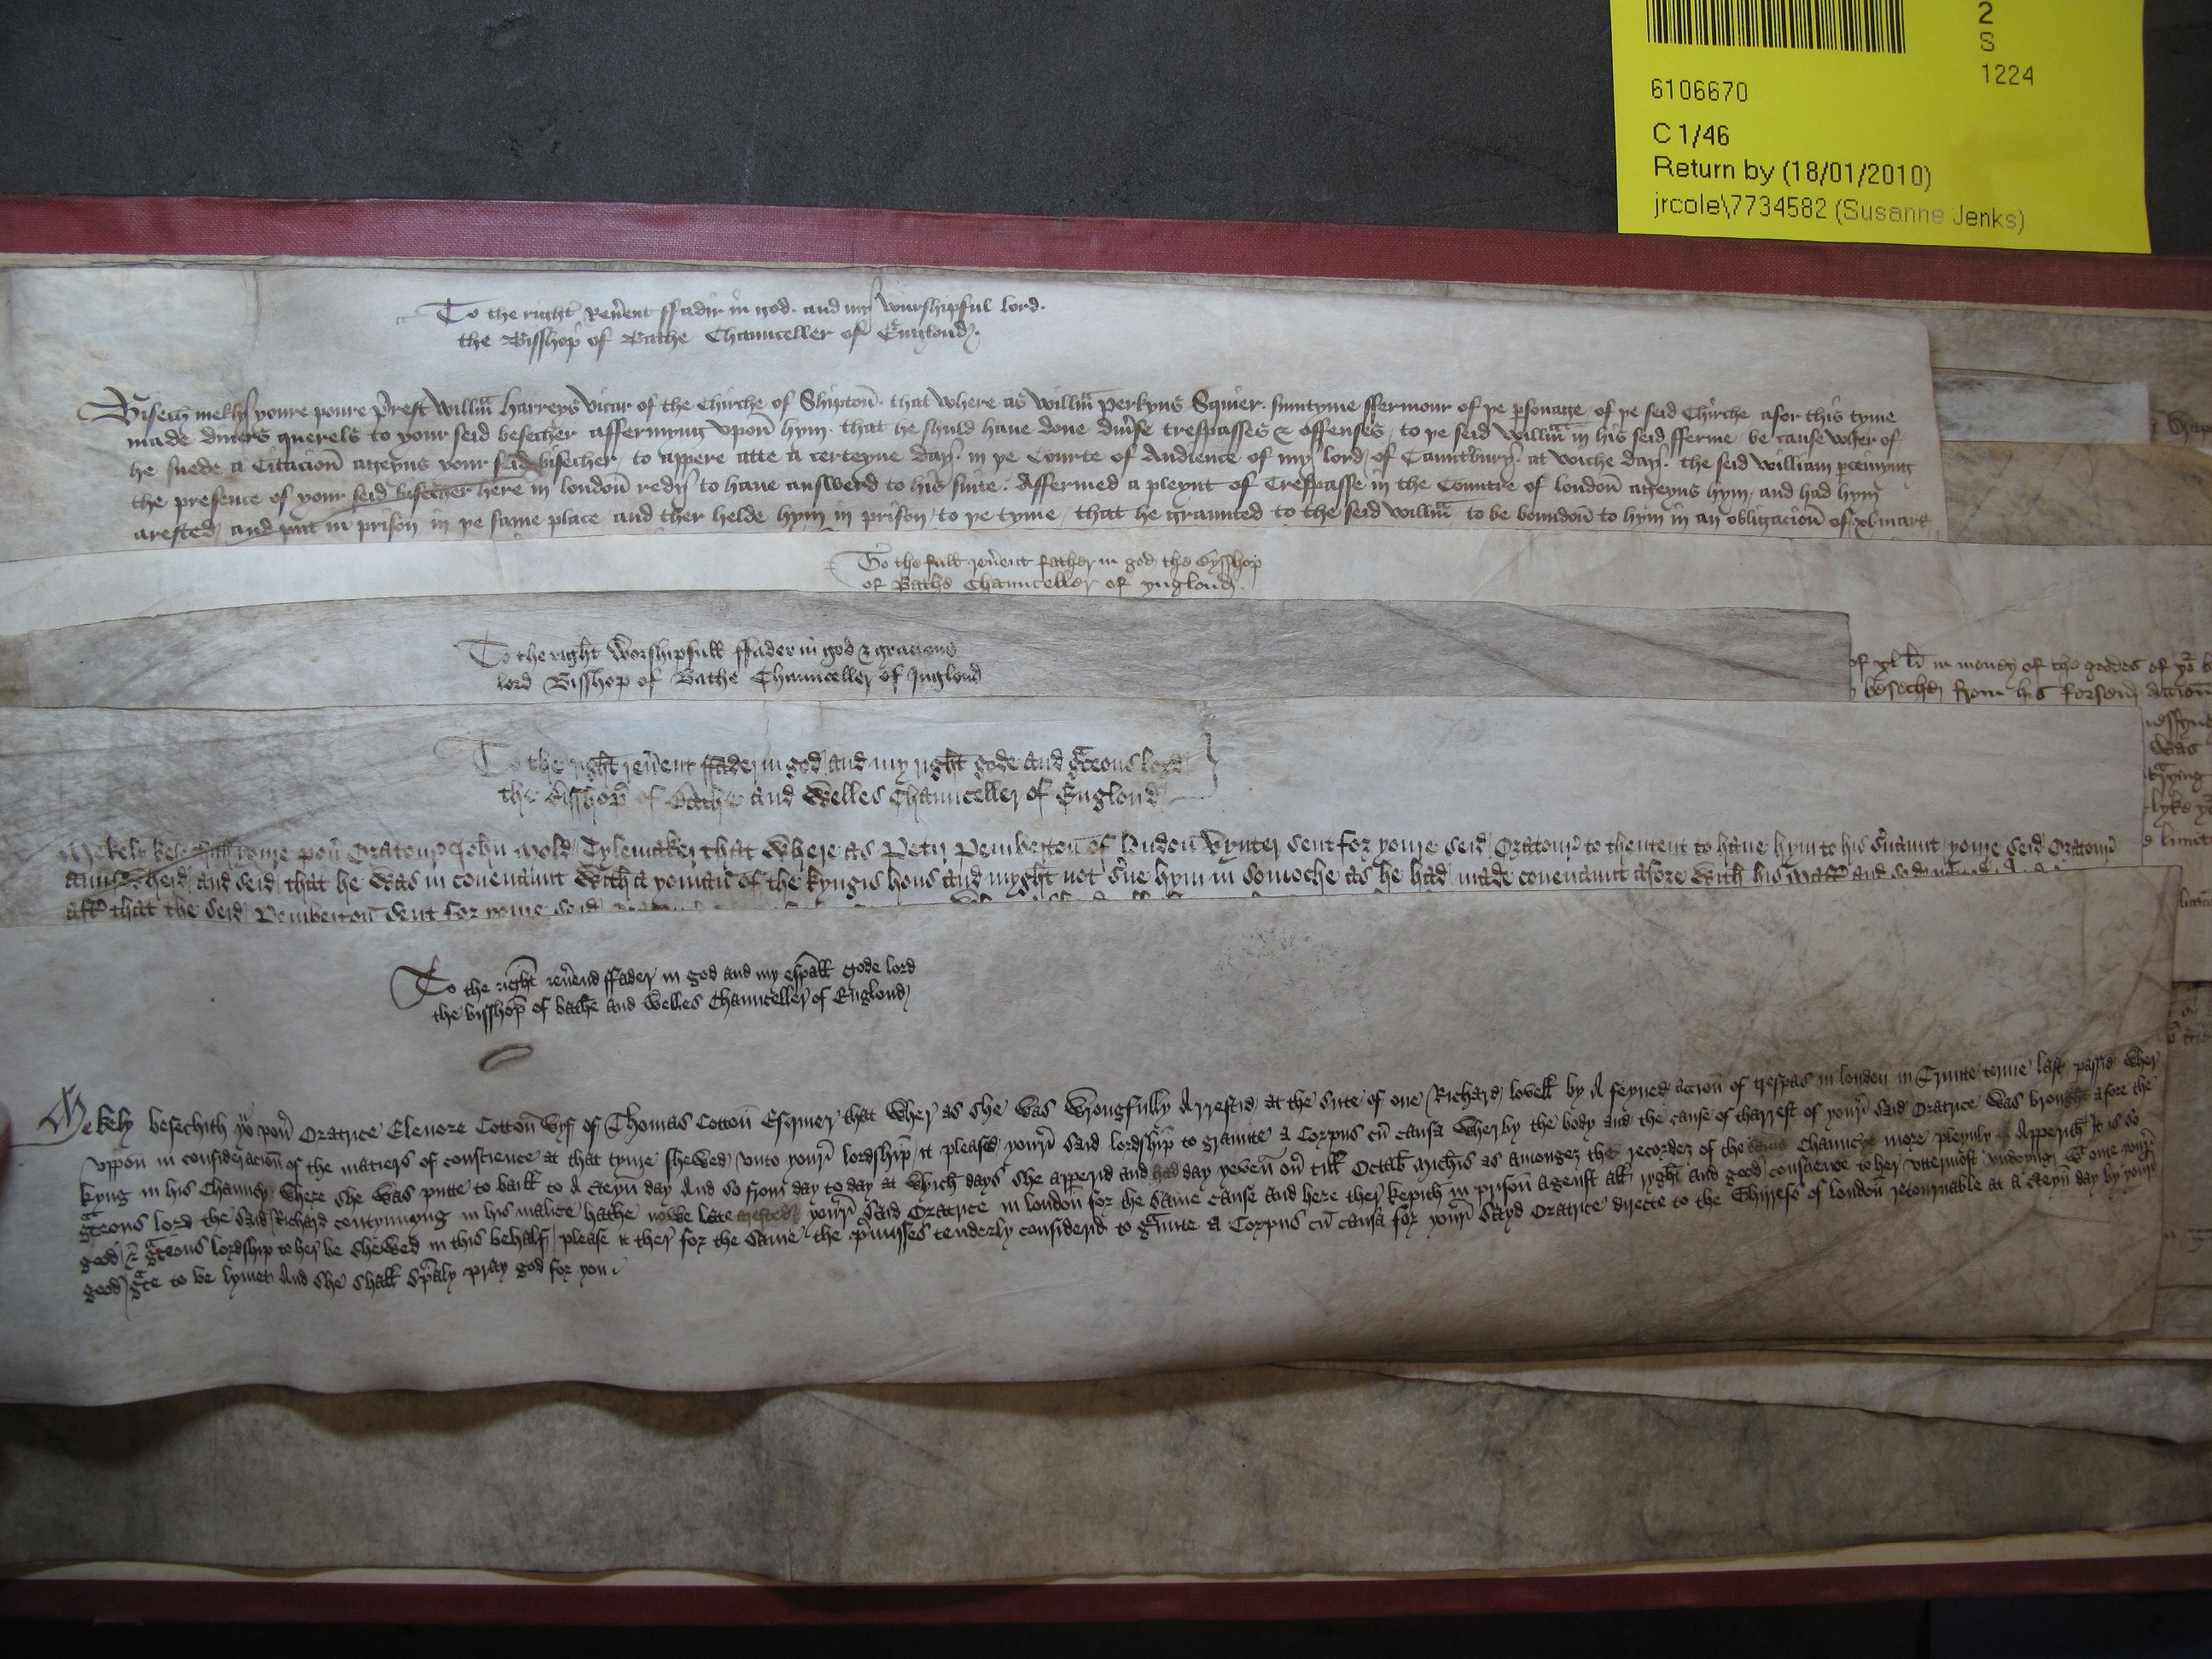 2
S
1224
6106670
C 1/46
Return by (18/01/2010)
jrcole\7734582 (Susanne Jenks)
To the right Reu̾ent ffadir in god. and my wurshipful lord.
the Bisshop of Bathe Chaunceller of Englond
Bisech mekly youre poure Prest Willm̄ Harreys vicar of the Chirche of Shipton̄. that where as Willm̄ Perkyns Squier. sumtyme ffermour of þe p̱sonage of þe seid Chirche afor this tyme
made diuers querels to your seid besecher affermyng vpon̄ hym. that he shuld haue done diu̾se trespasses & offenses to þe seid Willm̄ in his seid fferme be cause wher of
he suede a Citacion̄ ageyns your seid bisecher to appere atte a certeyne day. in þe Courte of Audience of my lord of Caunt̾bury. at wiche day. the seid William p̱ceiuyng
the presence of your seid bisecher here in london̄ redy to haue answerd to his suite. Affermed a pleynt of Trespasse in the Countre of london̄ ageyns hym, and had hym
arested, and put in prison in þe same place and ther helde hym in prison, to þe tyme, that he graunted to the seid Willm̄ to be boundon̄ to hym in an obligacion̄ of xl mark
To the full reu̾ent father in god the bysshop
of Bathe Chaunceller of ynglond
To the right worshipfull ffader in god & gracious
lord Bisshop of Bathe Chaunceller of Inglond
of xl li in money of the goddes of yor b
besecher from his forseid accion̄
To the right reu̾ent ffader in god and my right gode and gracous lord
the bisshop of Bathe and Welles Chaunceller of Englond
Mekely youre pou̾ Oratour John Mold Tylemaker that where as Petir Pemberton̄ of london̄ Wynter sent for youre seid Oratour to thentent to haue hym to his s̾uaunt youre seid Oratour
answherid and seid that he was in couenaunt with a yoman of the kyngis hous and myght not s̾ue hym in somoche as he had made couenaunt afore with his
aft̾ that the seid Pemberton̄ sent for youre seid
was
lyke
To the right reu̾end ffader in god and my esp̄all gode lord
the bisshop̄ of bathe and welles Chaunceller of Englond
Mekely besechith yor pou̾ Oratrice Elenore Cotton̄ wyf of Thomas Cotton̄ Esquier that wher as she was wrongfully Arrestid at the sute of one Richard lovell by A feyned accion̄ of trespas in london in Trinite terme last passid wher
vppon in consideracion̄ of the maters of conscience at that tyme shewed vnto your lordship it pleased your said lordship to graunte a Corpus cū causa wherby the body and the cause of tharrest of your said Oratrice was brought afore the
kyng in his Chauncy where she was putte to baill to A certeyn day And so from day to day at which days she apperid and had day yeven ou̾ till Octab̄ Mich̄is as amongez the recordez of the same Chauncye more pleynly Apperith It is so
gracous lord the said Richard contynuyng in his malice hathe nowe late arested your said Oratrice in london̄ for the same cause and here ther kepith in prison̄ agenst all ryght and good conscience to her vttermost vndoyng wt oute your
good & gracous lordship to her be shewed in this behalf, please it ther for the same the p̄mysses tenderly considerid to graunte a Corpus cū causa for your sayd Oratrice directe to the Shirrefs of london̄ retournable at a certeyn day by your
good grace to be lymet And she shall sp̄aly pray god for you